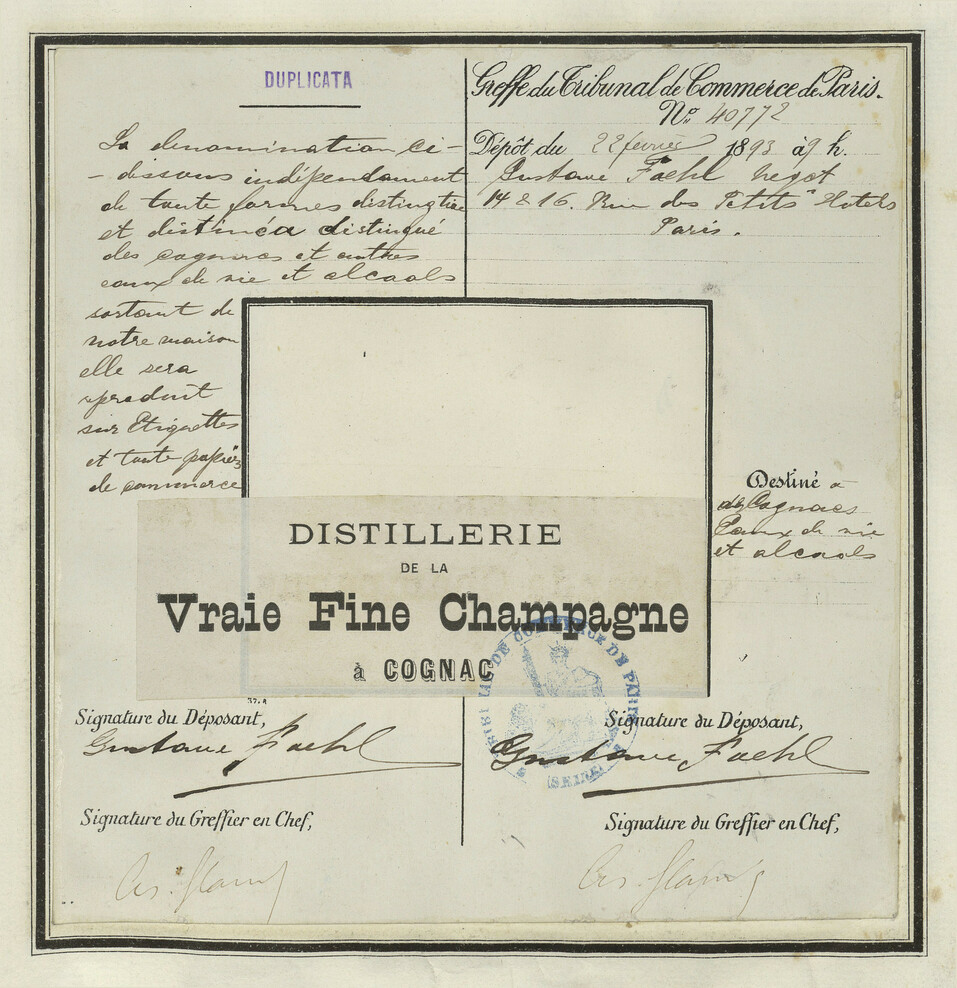 DUPLICATA
La denomination ci-
-dissous indépendament
de toute formes distinctive
et distinéa distingué
des cognacs et autres
eaux de vie et alcools
sortant de
notre maison
elle sera
reproduit
sur Etiquettes
et toute papiers
de commerce
Greffe du Tribunal de Commerce de Paris.
N° 40772
Dépôt du 22 fevrier 1893 à 9 h.
Gustave Faehl Negot
14 & 16. Rue des Petits Hotels
Paris.
Destiné a
des Cognacs
Eaux de vie
et alcools
DISTILLERIE
DE LA
Vraie Fine Champagne
à COGNAC
TRIBUNAL DE COMMERCE DE PARIS
(SEINE)
Signature du Déposant,
Gustave Faehl
Signature du Greffier en Chef,
Signature du Déposant,
Gustave Faehl
Signature du Greffier en Chef,